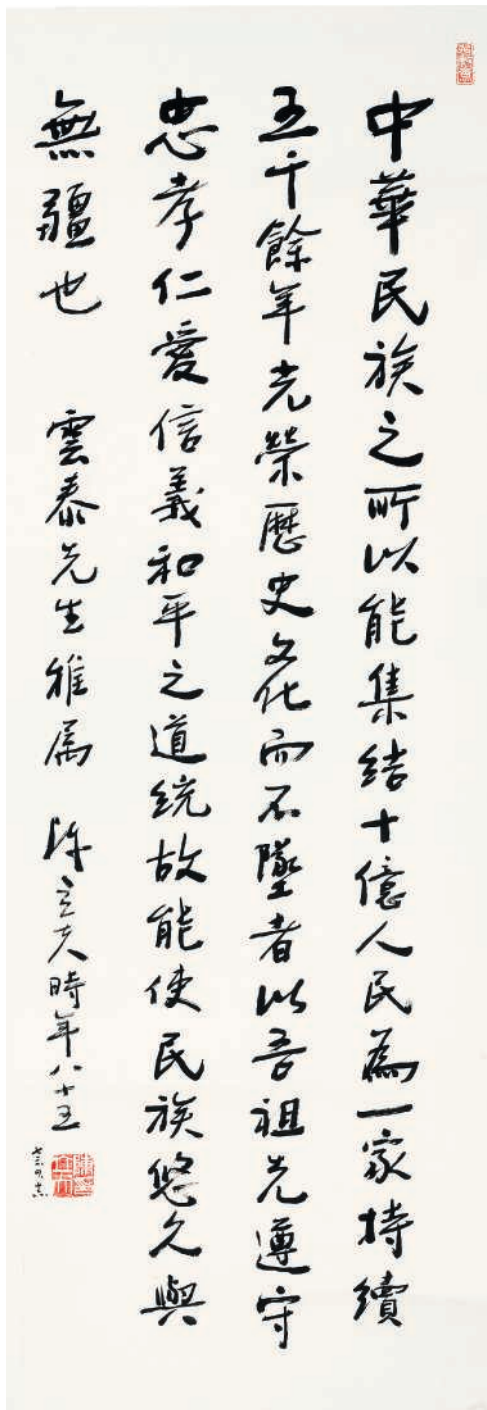 中華民族之所以能集結十億人民為一家持續
五千餘年光榮歷史文化而不墜者以吾祖先遵守
忠孝仁愛信義和平之道統故能使民族悠久與
無疆也 雲泰先生雅屬 陳立夫時年八十五